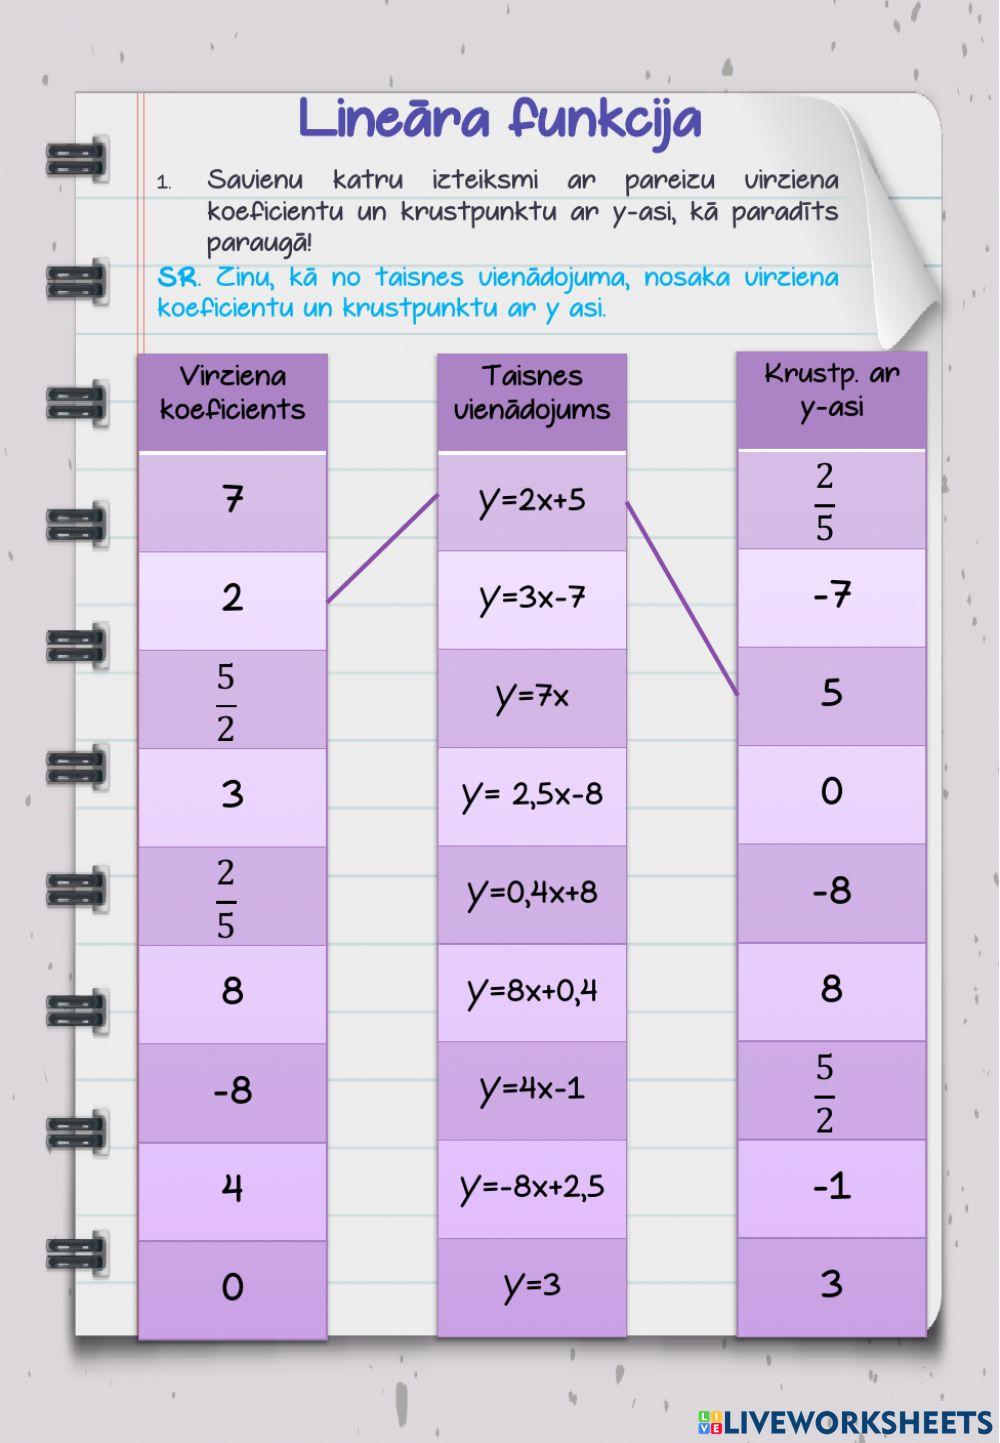 Lineāra funkcija
1. Savienu katru izteiksmi ar pareizu virziena
koeficientu un krustpunktu ar y-asi, kā paradīts
paraugā!
SR. Zinu, kā no taisnes vienādojuma, nosaka virziena
koeficientu un krustpunktu ar y asi.
Virziena
koeficients
Taisnes
vienādojums
Krustp. ar
y-asi
7
y=2x+5
2/5
2
y=3x-7
-7
5/2
y=7x
5
3
y= 2,5x-8
0
2/5
y=0,4x+8
-8
8
y=8x+0,4
8
-8
y=4x-1
5/2
4
y=-8x+2,5
-1
0
y=3
3
LIVE LIVEWORKSHEETS